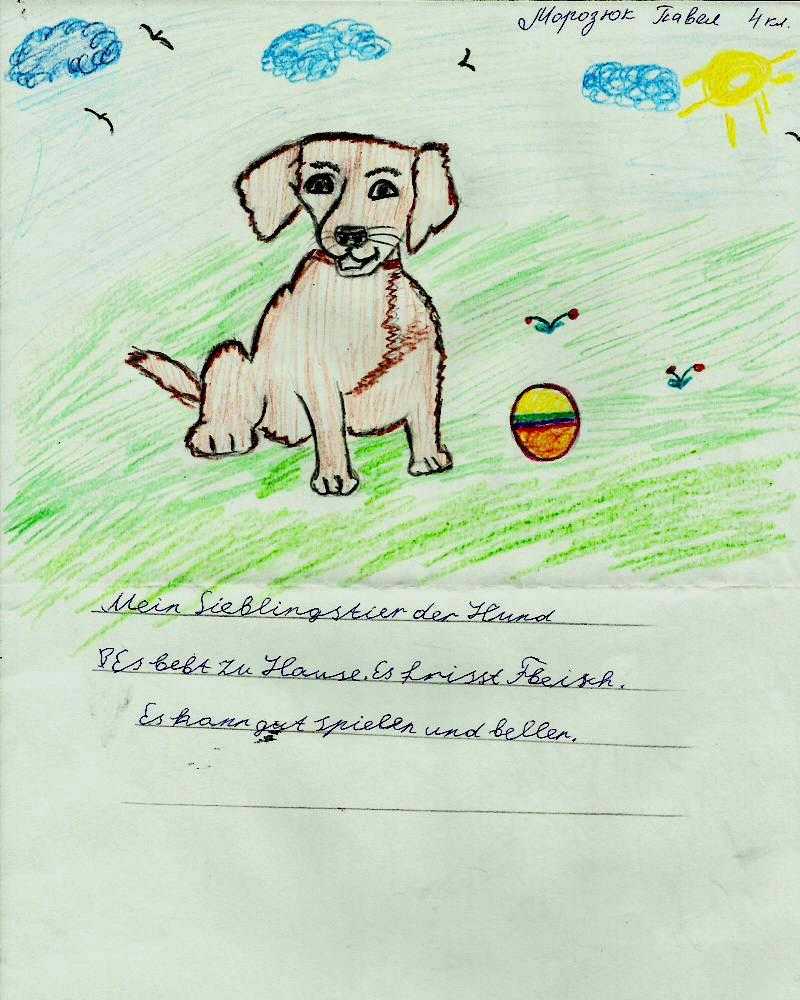 Морозюк Павел 4 кл.
Mein Lieblingstier der Hund
Es lebt zu Hause. Es frisst Fleisch.
Es kann gut spielen und bellen.